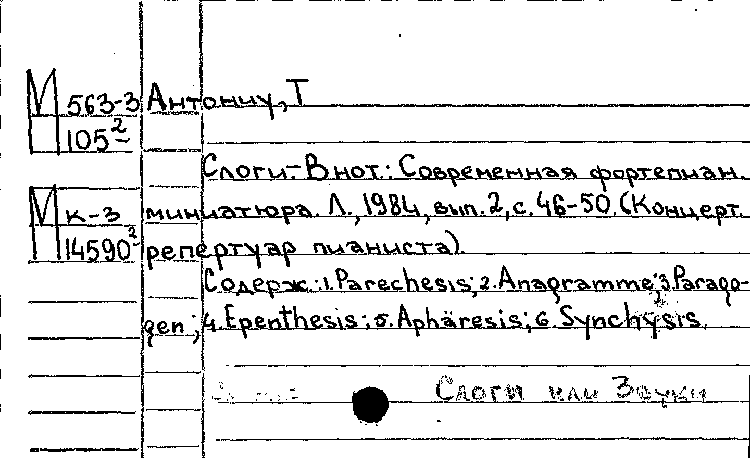 М 563-3 Антониу, Т
105²
Слоги.-В нот.: Современная фортепиан.
М к-3 миниатюра. Л., 1984, вып. 2, с. 46-50. (Концерт.
14590² репертуар пианиста).
Содерж.: 1. Parechesis; 2. Anagramme; 3. Parago-
gen; 4. Epenthesis; 5. Aphäresis; 6. Synchysis.
Слоги или Звуки